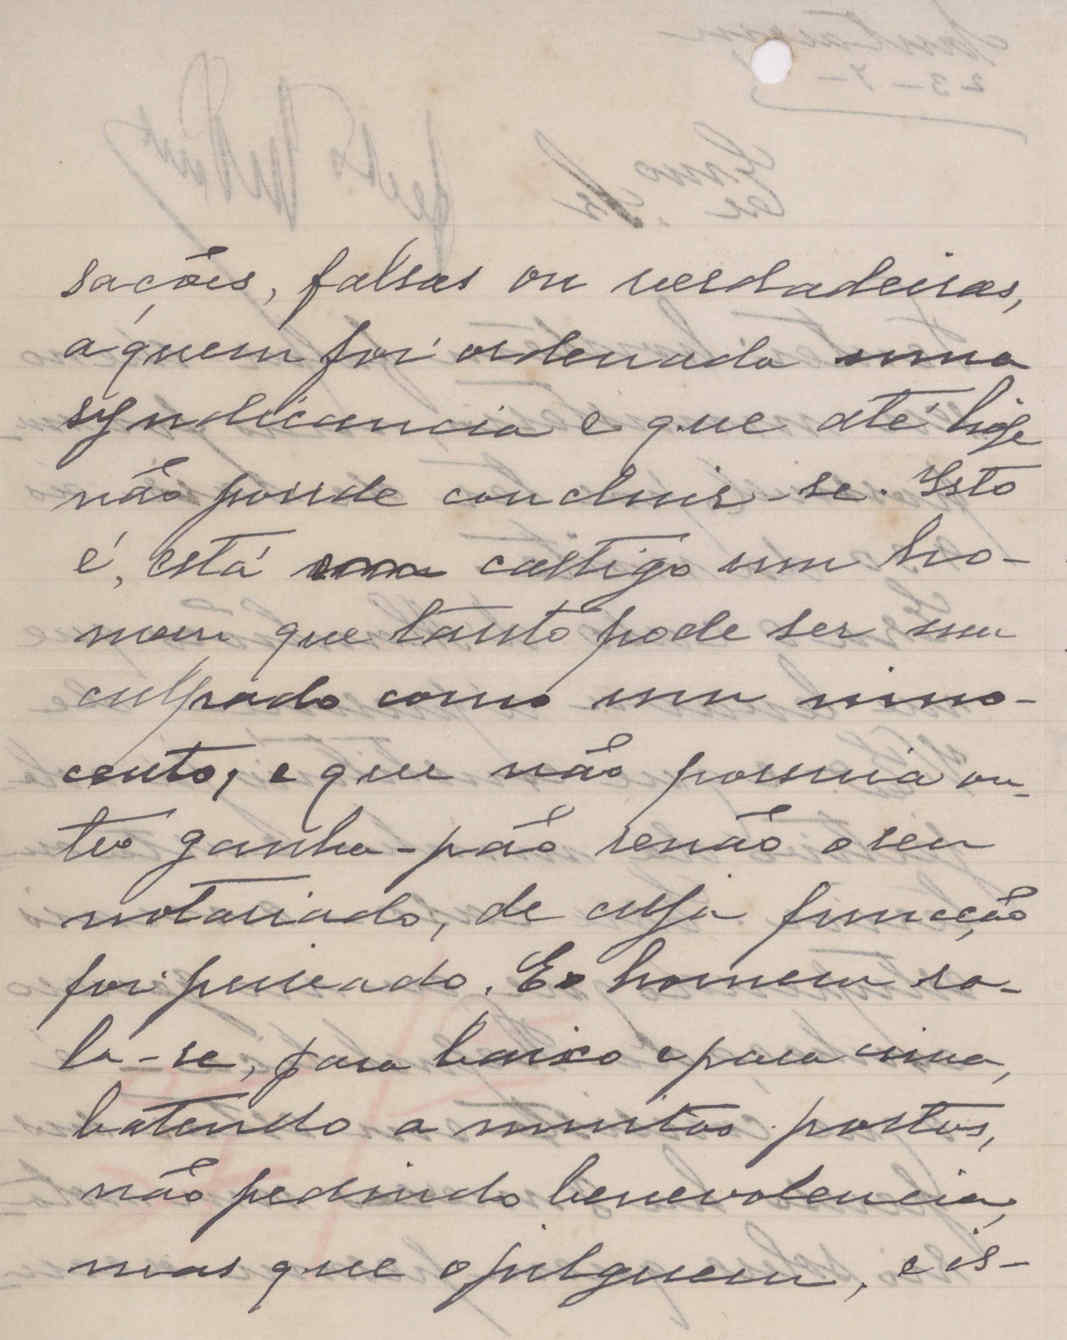 sações, falsas ou verdadeiras,
a quem foi ordenada uma
syndicancia e que até hoje
não poude concluir-se. Isto
é, está castigo um ho-
mem que tanto pode ser um
culpado como um inno-
cente, e que não possuia ou-
tro ganha-pão senão o seu
notariado, de cuja funcção
foi privado. Eo homem ra-
la-se, para baixo e para cima,
batendo a muitas portas,
não pedindo benevolencia,
mas que o julguem, e is-